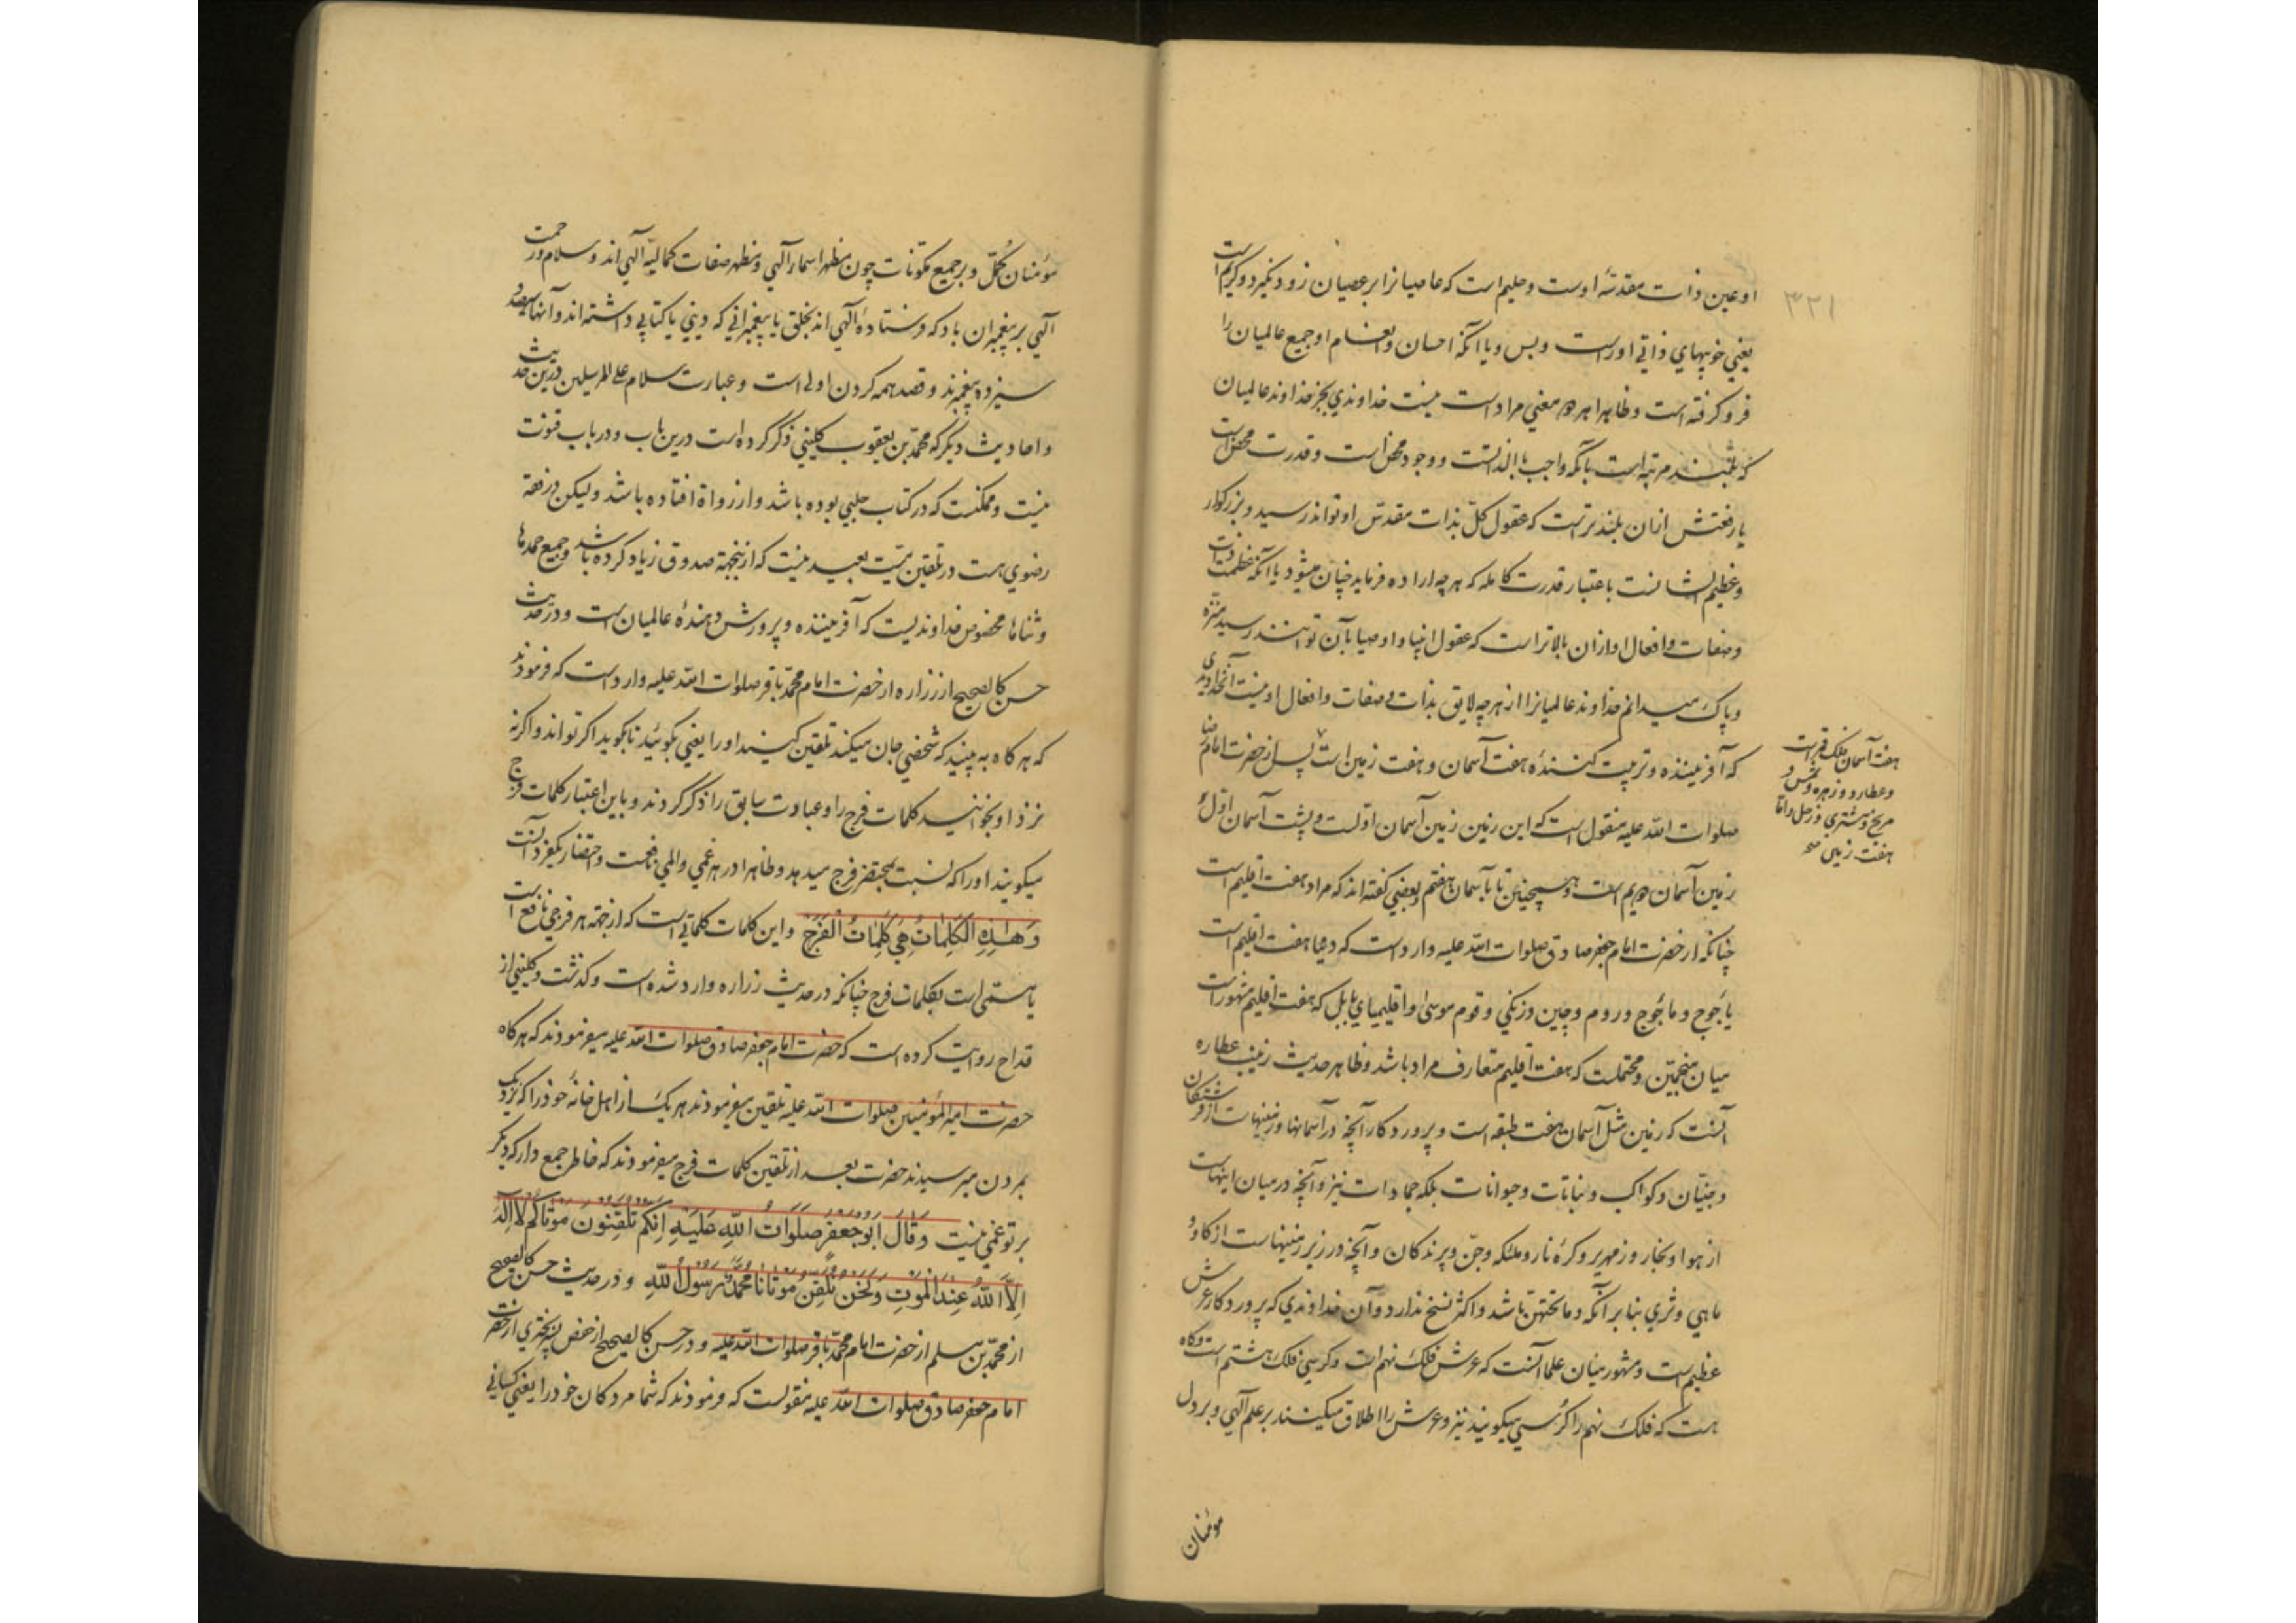 ۳۲۱
او عین ذات مقدسهٔ اوست و حلیم است که عاصیانرا بر عصیان زود نکیرد و کریم است
یعنی خوبیهای ذاتی اوراست و بس و یا آنکه احسان و انعام او جمیع عالمیان را
فرو کرفته است و ظاهرا هر دو معنی مراد است نیست خداوندی بجز خداوند عالمیان
که بلند مرتبه است بآنکه واجب بالذاتست و وجود محض است و قدرت محض است
یا رفعتش ازان بلندترست که عقول کلّ بذات مقدّس او تواند رسید و بزرکوار
و عظیم الشانست باعتبار قدرت کامله که هرچه اراده فرماید چنان میشود یا آنکه عظمت ذات
و صفات و افعال او ازان بالاتر است که عقول انبیا و اوصیا بآن توانند رسید منزّه
و پاک میدانم خداوند عالمیانرا از هرچه لایق بذات و صفات و افعال او نیست آنخداوندی
که آفریننده و تربیت کنندهٔ هفت آسمان و هفت زمین است پس از حضرت امام رضا
صلوات الله علیه منقول است که این زمین زمین آسمان اولست و پشت آسمان اول
زمین آسمان دویم است و همچنین تا بآسمان هفتم و بعضی کفته اند که مراد هفت اقلیم است
چنانکه از حضرت امام جعفر صادق صلوات الله علیه وارد است که دنیا هفت اقلیم است
یأجوج و مأجوج و روم و چین و زنکی و قوم موسی و اقلیمهای بابل که هفت اقلیم مشهور است
میان منجمّین و محتملست که هفت اقلیم متعارف مراد باشد و ظاهر حدیث زینب عطاره
آنست که زمین مثل آسمان هفت طبقه است و پروردکار آنچه در آسمانها و زمینهاست از فرشتکان
و جنیّان و کواکب و نباتات و حیوانات بلکه جمادات نیز و آنچه در میان اینهاست
از هوا و بخار و زمهریر و کرهٔ نار و ملئکه و جنّ و پرندکان و آنچه در زیر زمینهاست از کاو و
ماهی و ثری بنا بر آنکه و ما تحتهنّ باشد و اکثر نسخ ندارد و آن خداوندی که پروردکار عرش
عظیم است و مشهور میان علما آنست که عرش فلک نهم است و کرسی فلک هشتم است و کاه
هست که فلک نهم را کرسی میکویند نیز و عرش را اطلاق میکنند بر علم آلهی و بر دل
مؤمنان
هفت آسمان فلک قمر است
و عطارد و زهره و شمس و
مریخ و مشتری و زحل و اما
هفت زمین صح
مؤمنان کمّل و بر جمیع مکونات چون مظهر اسماء آلهی و مظهر صفات کمالیّه آلهی اند و سلام و رحمت
آلهی بر پیغمبران باد که فرستادهٔ آلهی اند بخلق یا پیغمبرانی که دینی یا کتابی داشته اند و آنها سیصد و
سیزده پیغمبرند و قصد همه کردن اولی است و عبارت سلام علی المرسلین درین حدیث
و احادیث دیکر که محمّد بن یعقوب کلینی ذکر کرده است درین باب و در باب قنوت
نیست و ممکنست که در کتاب حلبی بوده باشد و از رواة افتاده باشد و لیکن در فقه
رضوی هست در تلقین میّت بعید نیست که ازینجهة صدوق زیاد کرده باشد و جمیع حمدها
و ثناها مخصوص خداوندیست که آفریننده و پرورش دهندهٔ عالمیان است و در حدیث
حسن کالصحیح از زراره از حضرت امام محمّد باقر صلوات الله علیه وارد است که فرمودند
که هر کاه به بینید که شخصی جان میکند تلقین کنید او را یعنی بکوئید تا بکوید اکر تواند و اکر نه
نزد او بخوانید کلمات فرج را و عبارت سابق را ذکر کردند و باین اعتبار کلمات فرج
میکویند او را که نسبت بمحتضر فرج میدهد و ظاهرا در هر غمی و المی نافعست و احتضار یکفرد آنست
وَهٰذِهِ الْكَلِمَاتُ هِيَ كَلِمَاتُ الْفَرَجْ و این کلمات کلماتی است که از جهة هر فرجی نافع است
یا مسمّی است بکلمات فرج چنانکه در حدیث زراره وارد شده است و کذشت و کلینی از
قداح روایت کرده است که حضرت امام جعفر صادق صلوات الله علیه میفرمودند که هر کاه
حضرت امیر المؤمنین صلوات الله علیه تلقین میفرمودند هر یک از اهل خانهٔ خود را که نزدیک
بمردن میرسیدند حضرت بعد از تلقین کلمات فرج میفرمودند که خاطر جمع دار که دیکر
بر تو غمی نیست وَقَالَ ابُوجَعْفَرٍ صَلَوَاتُ اللّٰهِ عَلَيْهِ اِنَّكُمْ تُلَقِّنُونَ مَوْتَاكُمْ لَا اِلٰهَ
اِلَّا اللّٰهُ عِنْدَ الْمَوْتِ وَنَحْنُ نُلَقِّنُ مَوْتَانَا مُحَمَّدٌ رَسُولُ اللّٰهِ و در حدیث حسن کالصحیح
از محمّد بن مسلم از حضرت امام محمّد باقر صلوات الله علیه و در حسن کالصحیح از حفص بن بختری از حضرت
امام جعفر صادق صلوات الله علیه منقولست که فرمودند که شما مردکان خود را یعنی کسانی